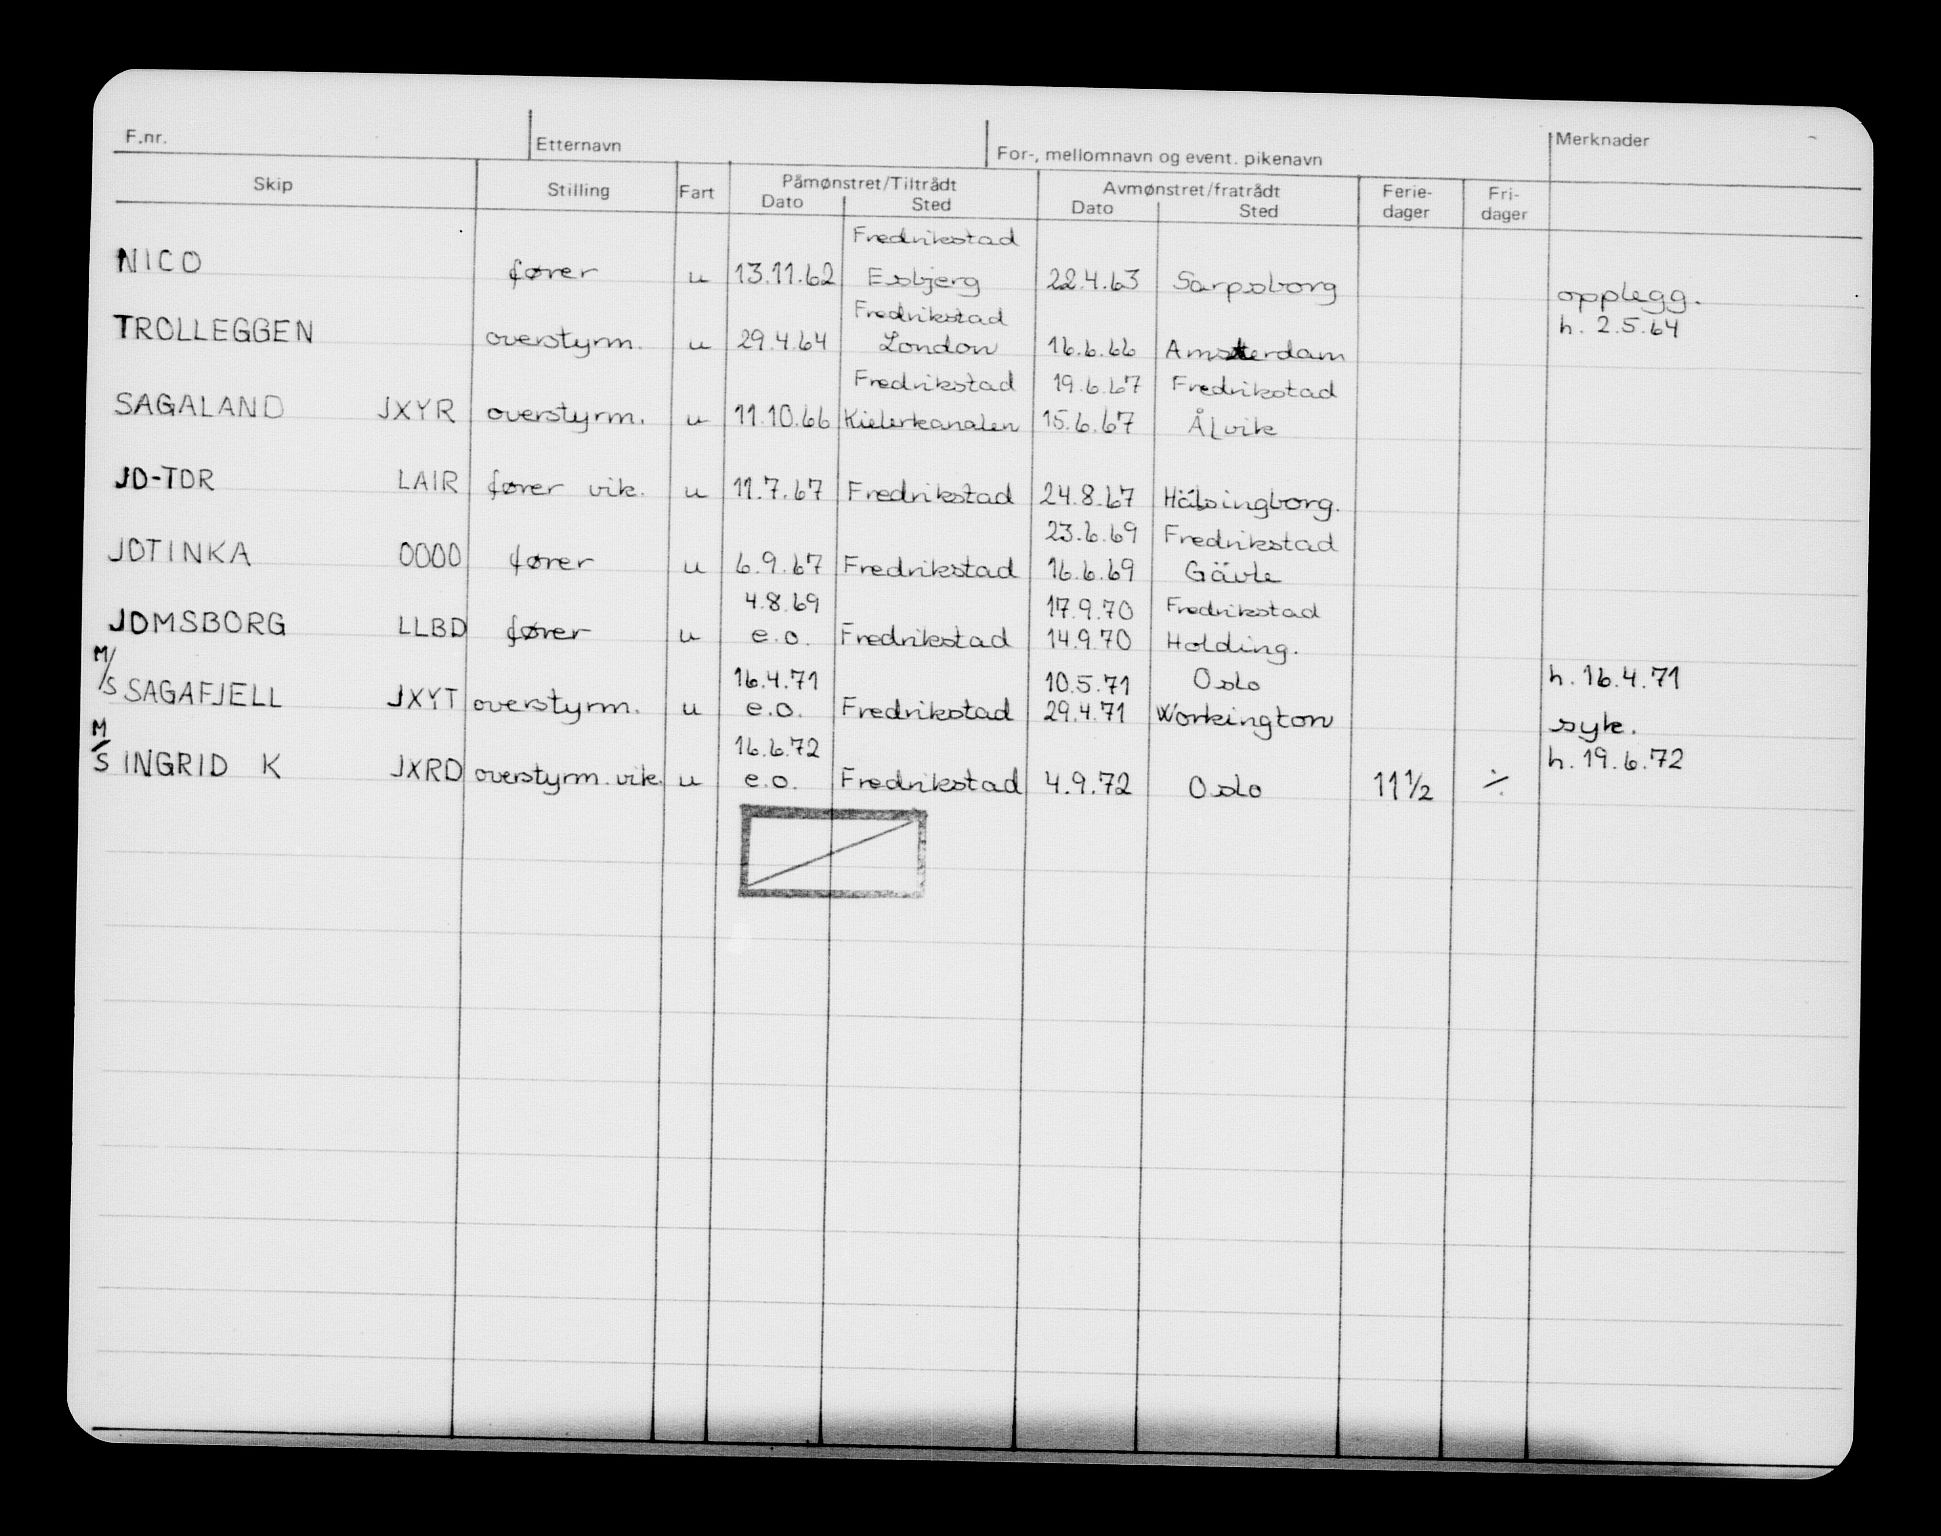 F.nr. Etternavn For-, mellomnavn og event. pikenavn Merknader
Skip Stilling Fart Påmønstret/Tiltrådt Avmønstret/fratrådt Ferie- Fri-
Dato Sted Dato Sted dager dager
Fredrikstad
NICO fører u 13.11.62 Esbjerg 22.4.63 Sarpsborg opplegg.
Fredrikstad h. 2.5.64
TROLLEGGEN overstyrm. u 29.4.64 London 16.6.66 Amsterdam
Fredrikstad 19.6.67 Fredrikstad
SAGALAND JXYR overstyrm. u 11.10.66 Kielerkanalen 15.6.67 Ålvik
JO-TOR LAIR fører vik. u 11.7.67 Fredrikstad 24.8.67 Hälsingborg.
23.6.69 Fredrikstad
JOTINKA OOOO fører u 6.9.67 Fredrikstad 16.6.69 Gävle
4.8.69 17.9.70 Fredrikstad
JOMSBORG LLBD fører u e.o. Fredrikstad 14.9.70 Holding.
16.4.71 10.5.71 Oslo h. 16.4.71
M/S SAGAFJELL JXYT overstyrm. u e.o. Fredrikstad 29.4.71 Workington syk.
16.6.72 h. 19.6.72
M/S INGRID K JXRD overstyrm. vik. u e.o. Fredrikstad 4.9.72 Oslo 11 1/2 ÷